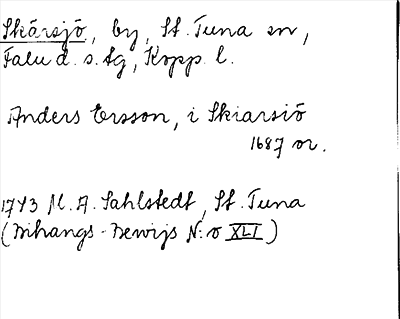 Skärsjö, by, St. Tuna sn,
Falu d. s. tg, Kopp. l.
Anders Ersson, i Skiarsiö
1687 or.
1743 M. A. Sahlstedt, St. Tuna
(Bihangs-Bewijs N:o XLI)